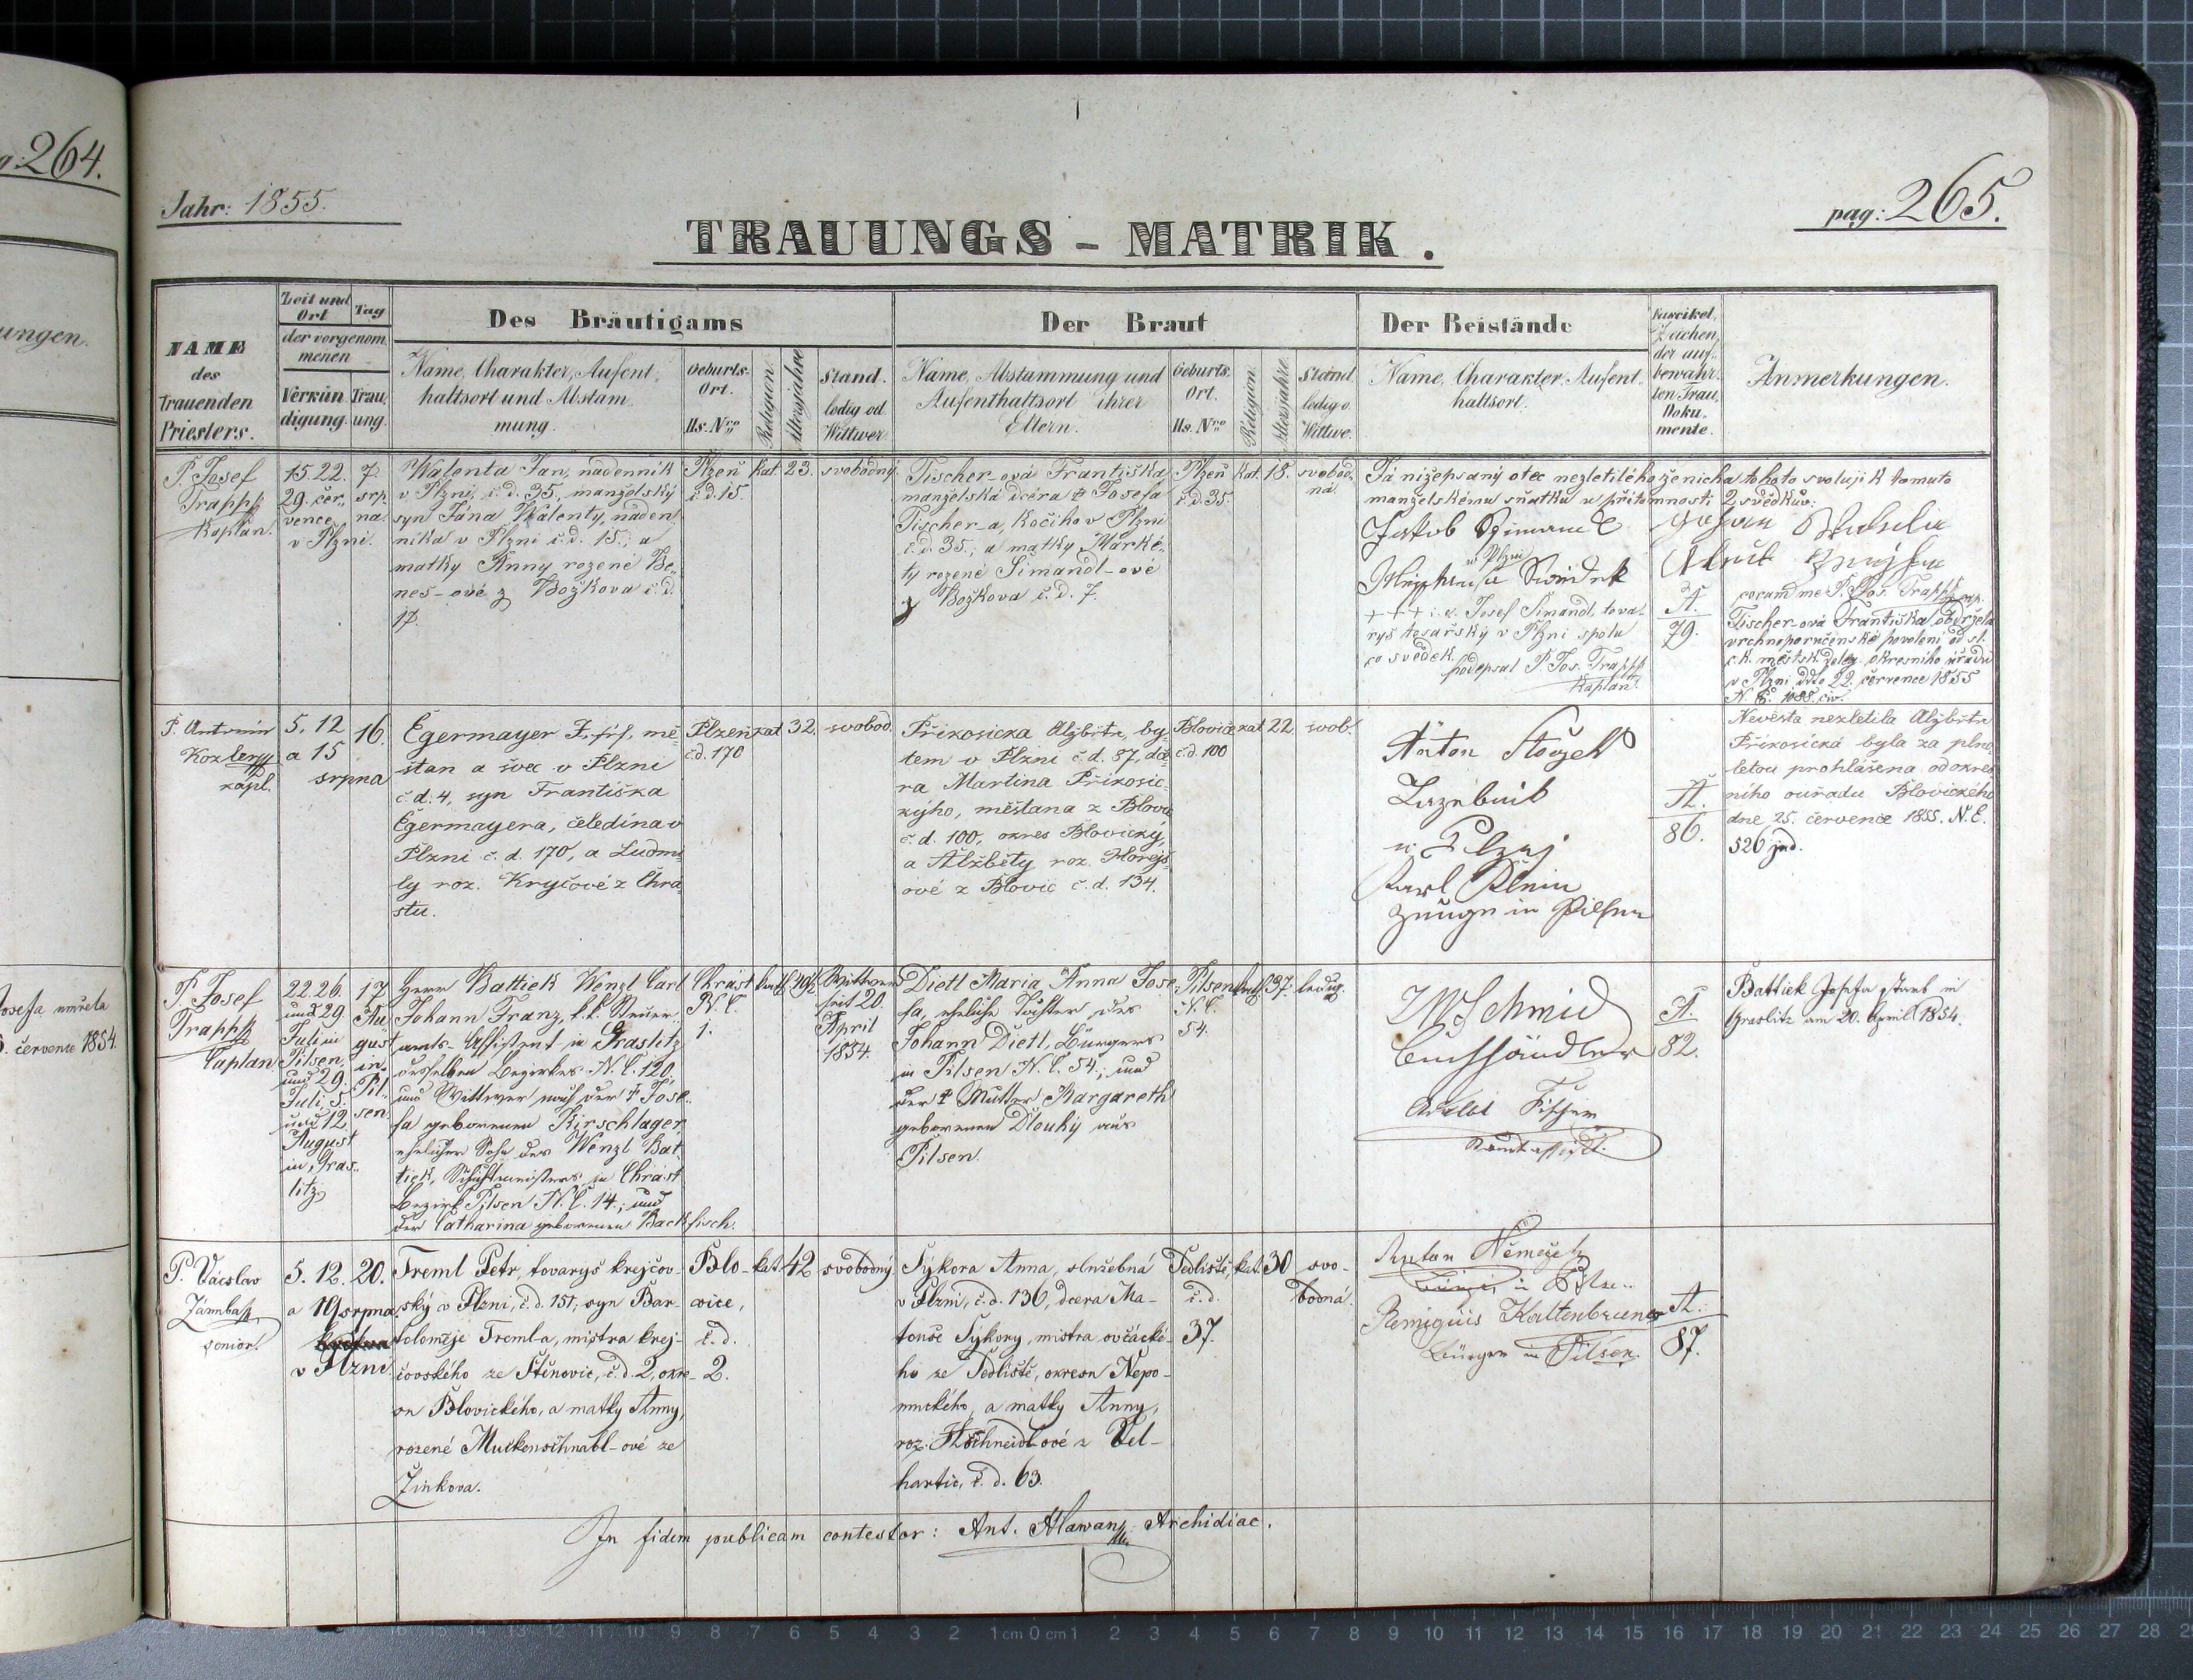 264.
ungen.
Josefa umřela
5. července 1854.
Jahr: 1855.
pag: 265.
TRAUUNGS - MATRIK.
NAME
des
Trauenden
Priesters.
Zeit und
Ort
Tag
der vorgenom
menen
Verkün
digung.
Trau,,
ung.
Des Bräutigams
Name, Charakter, Aufent,,
haltsort und Abstam,,
mung.
Geburts-
Ort.
Hs. Nro
Religion.
Altersjahre
Stand.
ledig od.
Wittwer.
Der Braut
Name, Abstammung und
Aufenthaltsort ihrer
Eltern.
Geburts-
Ort.
Hs. Nro
Religion.
Altersjahre.
Stand
ledig o.
Wittwe.
Der Beistände
Name, Charakter, Aufent,,
haltsort.
Fascikel,
Zeichen,
der auf,,
bewahr,,
ten Trau,,
Doku,,
mente.
Anmerkungen.
P. Josef
Trapp
Kaplan.
15. 22.
29. čer,,
vence
v Plzni.
7.
srp,,
na.
Walenta Jan, nádenník
v Plzni, č. d. 35., manželský
syn Jána Walenty, náden,,
níka v Plzni č. d. 15.; a
matky Anny rozené Be,,
neš-ové z Božkova č. d.
17.
Plzeň
č. d. 15.
kat.
23.
svobodný.
Tischer-ová Františka
manželská dcéra Josefa
Tischer-a, kočího v Plzni
č. d. 35.; a matky Marké,,
ty rozené Šimandl-ové
z Božkova č. d. 7.
Plzeň
č. d. 35.
kat.
18.
svobod,,
ná.
Já nížepsaný otec nezletilého ženicha tohoto svoluji k tomuto
manželskému sňatku u přítomnosti 2 svědkův:
v Plzni
+++ Josef Šimandl, tova,,
ryš tesařský v Plzni spolu
co svědek.
podepsal P. Jos. Trapp
Kaplan.
A.
79.
coram me P. Jos. Trapp
Tischer-ová Františka obdržela
vrchnoporučenské povolení od sl.
c. k. městsk. deleg. okresního úřadu
v Plzni ddto 22. července 1855
N. E. 1088. civ.
P. Antonín
Kozlerp
kápl.
5. 12
a 15
srpna
16.
Egermayer měš
stan a švec v Plzni
č. d. 4, syn Františka
Egermayera, čeledína v
Plzni č. d. 170, a Ludmi
ly roz. Kryčové z Chrá
stu.
Plzeň
č. d. 170
kat
32.
svobod.
Přikosická Alžběta, by-
tem v Plzni č. d. 87, dce
ra Martina Přikosic-
kýho, měštana z Blovic
č. d. 100, okres Blovický,
a Alžběty roz. Horejš
ové z Blovic č. d. 134.
Blovice
č. d. 100
kat
22.
svob.
Anton
Lazebnik
v Plzni
Karl Klein
Zeuge in Pilsen
A.
86.
Nevěsta nezletilá Alžběta
Přikosická byla za plno,,
letou prohlášena od okres
ního ouřadu Blovického
dne 25. července 1855. N. E.
526 jud.
P. Josef
Trapp
Caplan
22. 26.
und 29.
Juli in
Pilsen,
und 29.
Juli, 5.
und 12.
August
in Gras,,
litz
17
Au
gust
in
Pil,,
sen.
Herr Battiek Wenzl Carl
Johann Franz, k.k. Steuer,,
amts-Assistent in Graslitz
desselben Bezirkes N. C. 120.
und Wittwer nach der + Jose-
fa geborenen Kirschlager,
ehelicher Sohn des Wenzl Bat,,
tiek, Schuhmeisters in Chrást
Bezirk Pilsen N. C. 14.; und
der Catharina geborenen Backfisch.
Chrást
N. C.
1.
kath
Wittwer
seit 20.
April
1854.
Dietl Maria Anna Jose,,
fa, eheliche Tochter des
Johann Dietl, Bürgers
in Pilsen N. C. 54.; und
der + Mutter Margareth
geborenen Dlouhý aus
Pilsen.
Pilsen
N. C.
54.
kath
37.
ledig.
Schmid
Buchhändler
Fischer
A.
82.
Battiek Josefa starb in
Graslitz am 20. April 1854.
P. Vácslav
senior.
5. 12.
a 19 srpna
v Plzni.
20.
Treml Petr, tovaryš krejčov-
ský v Plzni, č. d. 151, syn Bar-
toloměje Treml-a, mistra krej-
čovského ze Štěnovic, č. d. 2, okre-
su Blovického, a matky Anny,
rozené Muckenschnabl-ové ze
Žinkova.
Blo-
vice,
č. d.
2.
kat.
42
svobodný
Sýkora Anna, služebná
v Plzni, č. d. 136, dcera Ma-
touše Sýkory, mistra ovčácké-
ho ze Sedliště, okresu Nepo-
muckého, a matky Anny,
roz. z Vel-
hartic, č. d. 63.
Sedliště,
č. d.
37.
kat.
30
svo-
bodná.
Anton Němeček
Bürger in Pilsen
Remigius Kaltenbrunner
Bürger in Pilsen.
A.
87.
In fidem publicam contestor: Ant. Hlawan Archidiac.